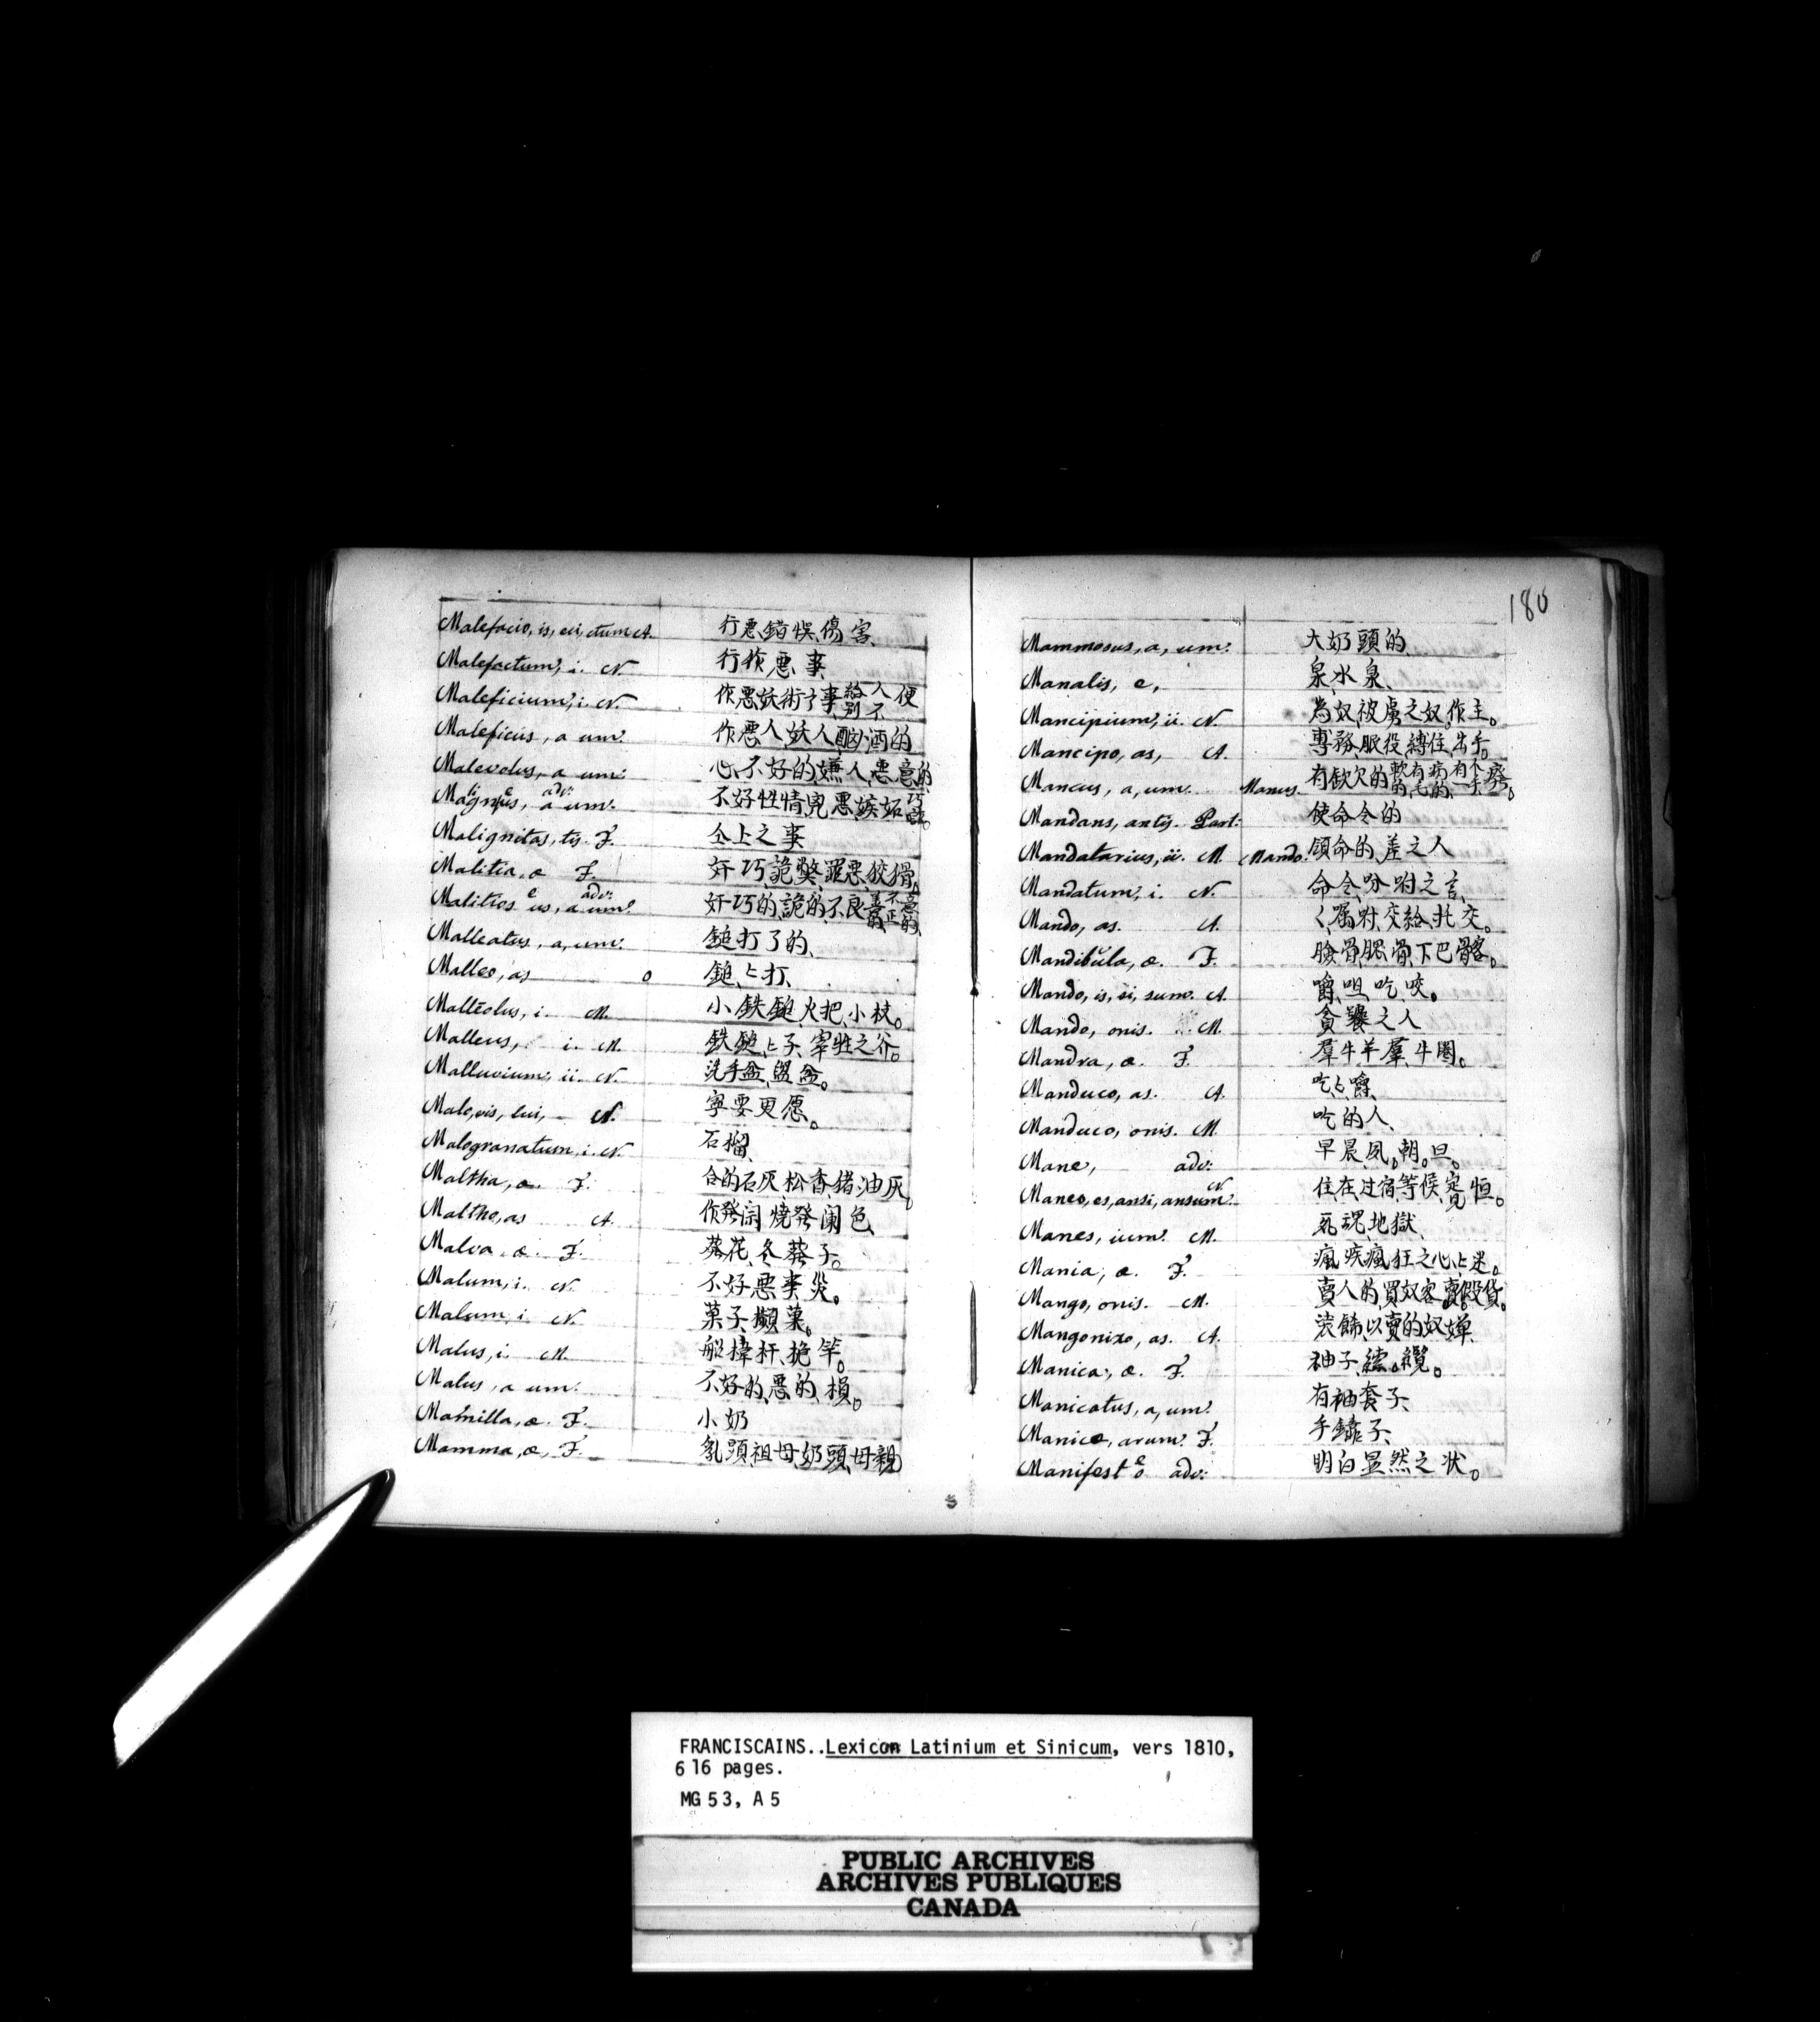 Malefacio, is, eci, ctum A. 行惡、錯悞、傷害、
Malefactum, i. N. 行作惡事
Maleficium, i. N. 作惡、妖術之事、給別人不便
Maleficus, a um. 作惡人、妖人、酗酒的
Malevolus, a um. 心不好的、嫌人、惡意的
不好性情、兇惡、嫉妬
Malignitas, tis F. 仝上之事
Malitia, æ F. 奸巧、詭獘、罪惡、狡猾。
Malitios e us, a um. adv: 奸巧的、詭的、不良善的、不正意的
Malleatus, a, um. 鎚打了的、
Malleo, as 鎚、上打、
Malleolus, i. M. 小鉄鎚、火把、小枝。
Malleus, i. M. 鉄鎚、上子、宰牲之斧。
Malluvium, ii. N. 洗手盆、盥盆。
Malo, vis, lui, N. 寧要、更愿。
Malogranatum, i. N. 石榴
Maltha, æ. F. 合的石灰、松香、猪油灰。
Maltho, as A.
Malva, æ. F. 葵花、冬葵子。
Malum, i. N. 不好、惡事、災。
Malum, i. N. 菓子、蘋菓。
Malus, i. M. 船桅杆、桅竿。
Malus, a um. 不好的、惡的、損。
Mamilla, æ. F. 小奶
Mamma, æ, F. 乳頭、祖母、奶頭、母親
180
Mammosus, a, um. 大奶頭的
Manalis, e, 泉水、泉
Mancipium, ii. N. 為奴、被虜之奴、作主。
Mancipo, as, A. 專務、服役、縛住、出手。
Mancus, a, um. Manus. 有欽欠的
Mandans, antis. Part: 使命令的
Mandatarius, ii. M. Mando. 領命的、差之人
Mandatum, i. N. 命令、吩咐之言、
Mando, as. A. 囑咐、交給、托交。
Mandibŭla, æ. F. 臉骨、腮骨、下巴骨。
Mando, is, di, sum. A. 嚼、咀、吃、咬。
Mando, onis. M. 貪饕之人
Mandra, æ. F. 羣牛羊羣、牛圈。
Manduco, as. A. 吃、嚼、
Manduco, onis. M. 吃的人、
Mane, adv: 早晨、夙。朝。旦。
Maneo, es, ansi, ansum. N. 住、在、过宿、等候、寔、恒。
Manes, ium. M. 死魂、地獄、
Mania, æ. F. 瘋疾、瘋狂之心、上迷。
Mango, onis. M. 賣人的、買奴客、賣假貨。
Mangonizo, as. A. 装餙以賣的奴婢、
Manica, æ. F. 袖子
Manicatus, a, um. 有袖套子、
Manicæ, arum. F. 手鐺子、
Manifest e o adv: 明白、显然之状。
FRANCISCAINS..Lexicon Latinium et Sinicum, vers 1810,
616 pages.
MG 53, A 5
PUBLIC ARCHIVES
ARCHIVES PUBLIQUES
CANADA